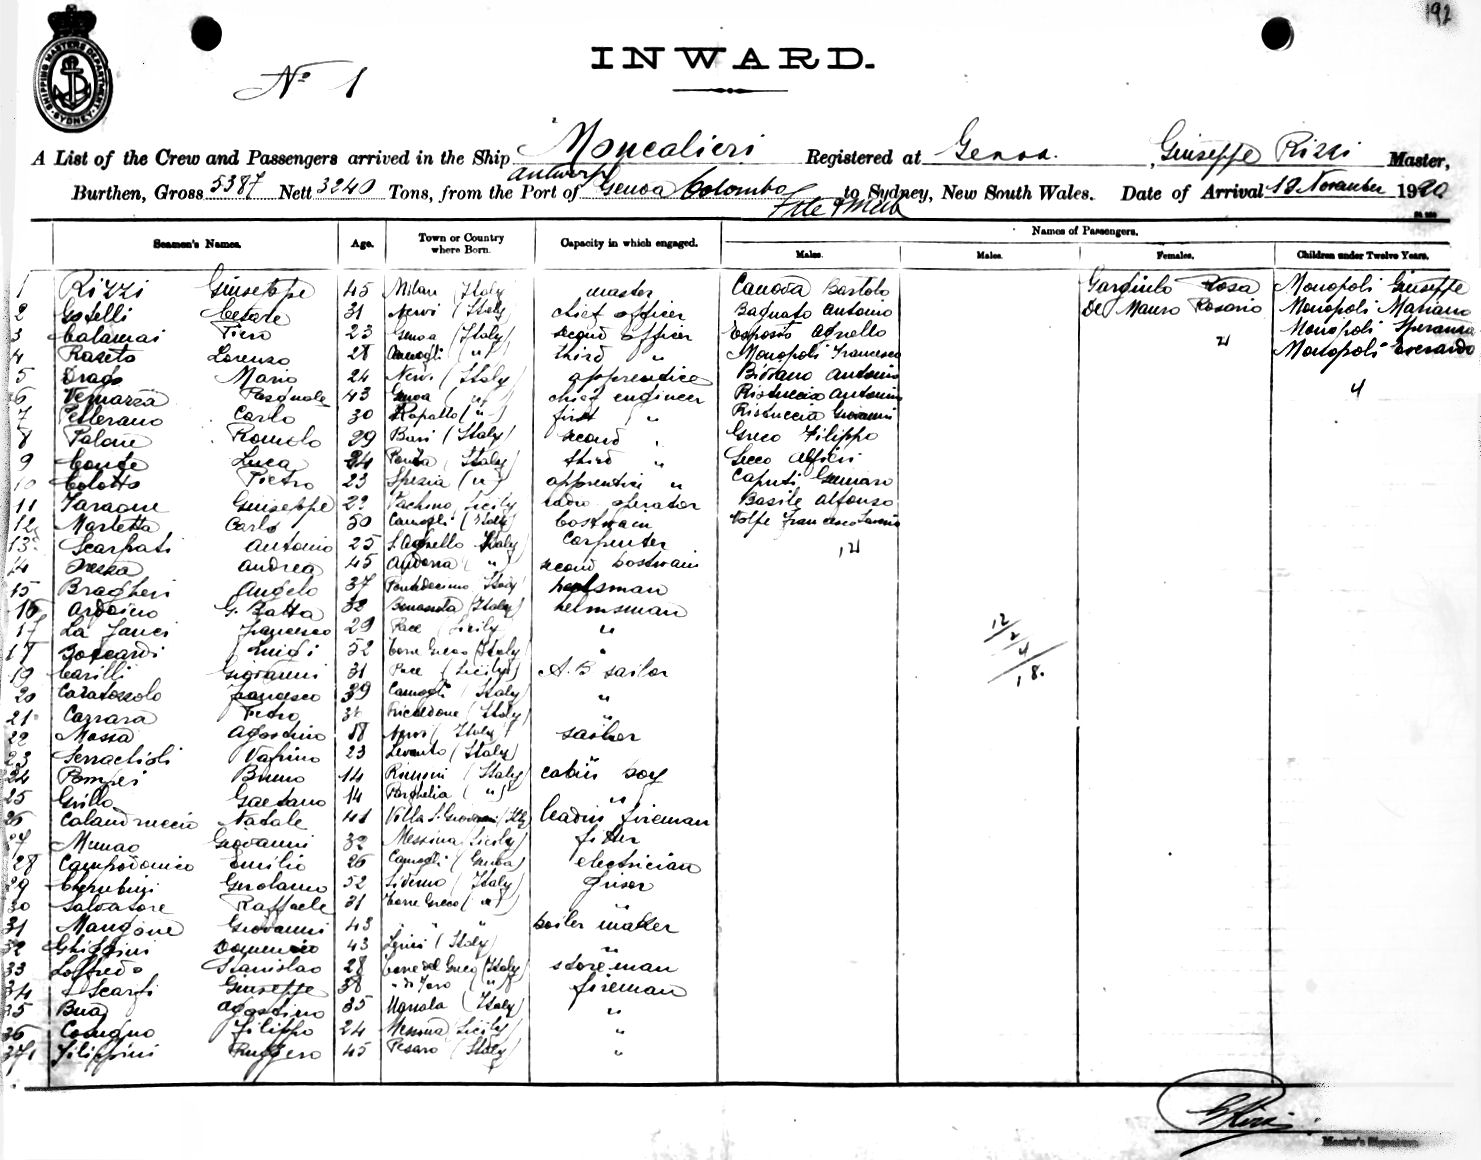 192
SHIPPING MASTERS DEPARTMENT
SYDNEY
INWARD.
No 1
A List of the Crew and Passengers arrived in the Ship Moncalieri Registered at Genoa. Giuseppe Rizzi Master,
Antwerp
Burthen, Gross 5387 Nett 3240 Tons, from the Port of Genoa Colombo to Sydney, New South Wales. Date of Arrival 18 November 1920
Seamen's Names. Age. Town or Country where Born. Capacity in which engaged. Names of Passengers.
Males. Males. Females. Children under Twelve Years.
1 Rizzi Giuseppe 45 Milan (Italy master Canova Bartolo Gargiulo Rosa Monopoli Giuseppe
2 Gotelli Cesare 31 Nervi (Italy chief officer Bagnato Antonio De Mauro Rosario Monopoli Mariano
3 Calamai Piero 23 Genoa (Italy) second officer Esposito Agnello Monopoli Speranza
4 Raseto Lorenzo 28 Camogli (") third " Monopoli Francesco 2 Monopoli Everardo
5 Drago Mario 24 Nervi (Italy) apprentice Antonio
6 Vernazza Pasquale 43 Genoa (") chief engineer Ristuccia Antonino 4
7 Carlo 30 Rapallo (") first " Ristuccia Giovanni
8 Palone Romolo 29 Bari (Italy) second " Greco Filippo
9 Conte Luca 24 Ponza (Italy) third " Secco Alfieri
10 Colotto Pietro 23 Spezia (") apprentice " Caputi Gennaro
11 Faraone Giuseppe 22 Pachino Sicily radio operator Basile Alfonso
12 Marletta Carlo 50 Camogli (Italy) bostwain Volpe Francesco
13 Scarpati Antonio 25 S. Agnello Italy) carpenter 12
14 Andrea 45 Andora (") second bostwain
15 Bragheri Angelo 37 Pontedecimo Italy helmsman
16 Ardoino G. Batta 32 (Italy) helmsman 12
17 La Fauci Francesco 29 Pace (Sicily " 2
17 Boccardi Luigi 52 Torre Greco (Italy) " 4
19 Carilli Giovanni 31 Pace (Sicily) A.B sailor 18.
20 Caratozzolo Francesco 39 Camogli (Italy) "
21 Carrara Pietro 36 Ricaldone (Italy) "
22 Massa Agostino 18 Nervi (Italy)
23 Serrachioli Vafrino 23 Levanto (Italy)
24 Pompei Bruno 14 Rimini (Italy) cabin boy
25 Grillo Gaetano 14 Parghelia (") "
26 Calandruccio Natale 41 Villa S. Giovanni (Italy leading fireman
27 Munao Giovanni 32 Messina (Sicily) fitter
28 Campodonico Emilio 26 Camogli (Genoa) electrician
29 Cherubini Girolamo 52 Siderno (Italy)
30 Salvatore Raffaele 31 Torre Greco (") "
31 Mangone Giovanni 43 " " boiler maker
32 Ghiggini Domenico 43 Lerici (Italy) "
33 Loffredo Stanislao 28 Torre del Greco (Italy) storeman
34 Scarfi Giuseppe 38 " di Faro (") fireman
35 Bua Agostino 35 (Italy) "
36 Comugno Filippo 24 Messina Sicily) "
37 Filippini Ruggero 45 Pesaro (Italy) "
G Rizzi
Master's Signature